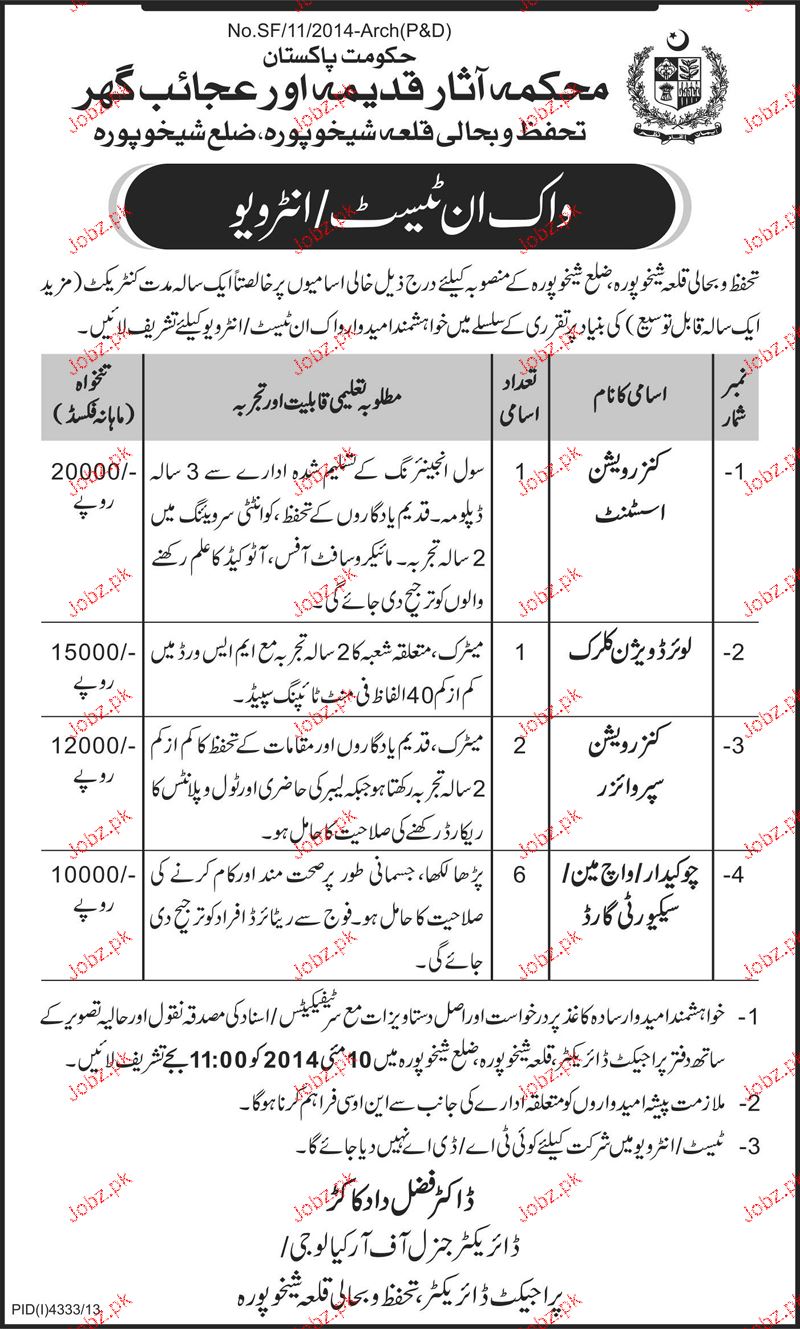 No.SF/11/2014-Arch(P&D)
حکومت پاکستان
محکمہ آثار قدیمہ اور عجائب گھر
تحفظ و بحالی قلعہ شیخوپورہ، ضلع شیخوپورہ
واک ان ٹیسٹ/انٹرویو
تحفظ و بحالی قلعہ شیخوپورہ، ضلع شیخوپورہ کے منصوبہ کیلئے درج ذیل خالی اسامیوں پر خالصتاً ایک سالہ مدت کنٹریکٹ (مزید
ایک سالہ قابل توسیع) کی بنیاد پر تقرری کے سلسلے میں خواہشمند امیدوار واک ان ٹیسٹ/انٹرویو کیلئے تشریف لائیں۔
نمبر شمار
اسامی کا نام
تعداد اسامی
مطلوبہ تعلیمی قابلیت اور تجربہ
تنخواہ (ماہانہ فکسڈ)
-1
کنزرویشن
اسسٹنٹ
1
سول انجینئرنگ کے تسلیم شدہ ادارے سے 3 سالہ
ڈپلومہ۔ قدیم یادگاروں کے تحفظ، کوانٹٹی سرویئنگ میں
2 سالہ تجربہ۔ مائیکروسافٹ آفس، آٹو کیڈ کا علم رکھنے
والوں کو ترجیح دی جائے گی۔
20000/-
روپے
-2
لوئر ڈویژن کلرک
1
میٹرک، متعلقہ شعبہ کا 2 سالہ تجربہ مع ایم ایس ورڈ میں
کم از کم 40 الفاظ فی منٹ ٹائپنگ سپیڈ۔
15000/-
روپے
-3
کنزرویشن
سپروائزر
2
میٹرک، قدیم یادگاروں اور مقامات کے تحفظ کا کم از کم
2 سالہ تجربہ رکھتا ہو جبکہ لیبر کی حاضری اور ٹول و پلانٹس کا
ریکارڈ رکھنے کی صلاحیت کا حامل ہو۔
12000/-
روپے
-4
چوکیدار/واچ مین/
سیکیورٹی گارڈ
6
پڑھا لکھا، جسمانی طور پر صحت مند اور کام کرنے کی
صلاحیت کا حامل ہو۔ فوج سے ریٹائرڈ افراد کو ترجیح دی
جائے گی۔
10000/-
روپے
-1 خواہشمند امیدوار سادہ کاغذ پر درخواست اور اصل دستاویزات مع سرٹیفکیٹس/اسناد کی مصدقہ نقول اور حالیہ تصویر کے
ساتھ دفتر پراجیکٹ ڈائریکٹر، قلعہ شیخوپورہ، ضلع شیخوپورہ میں 10 مئی 2014 کو 11:00 بجے تشریف لائیں۔
-2 ملازمت پیشہ امیدواروں کو متعلقہ ادارے کی جانب سے این او سی فراہم کرنا ہوگا۔
-3 ٹیسٹ/انٹرویو میں شرکت کیلئے کوئی ٹی اے/ڈی اے نہیں دیا جائے گا۔
ڈاکٹر فضل داد کاکڑ
ڈائریکٹر جنرل آف آرکیالوجی/
پراجیکٹ ڈائریکٹر، تحفظ و بحالی قلعہ شیخوپورہ
PID(I)4333/13
Jobz.pk